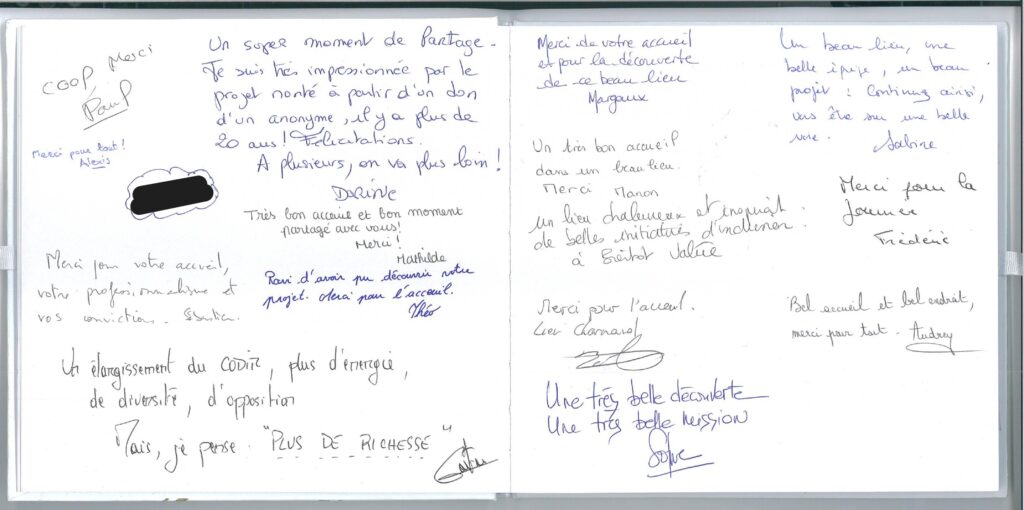 COOP Merci
Paul
Merci pour tout!
Alexis
Un super moment de Partage.
Je suis très impressionnée par le
projet monté à partir d'un don
d'un anonyme, il y a plus de
20 ans! Félicitations.
A plusieurs, on va plus loin!
DORINE
Très bon accueil et bon moment
partagé avec vous!
Merci!
Mathilde
Merci pour votre accueil,
votre professionnalisme et
vos convictions.
Ravi d'avoir pu découvrir votre
projet. Merci pour l'accueil.
Théo
Un élargissement du CODIR, plus d'énergie,
de diversité, d'opposition
Mais, je pense "PLUS DE RICHESSE"
Merci de votre accueil
et pour la découverte
de ce beau lieu
Margaux
Un très bon accueil
dans un beau lieu.
Merci Manon
un lieu chaleureux et inspirant.
de belles initiatives
à Bientôt Valérie
Merci pour l'accueil.
Lieu charmant
Une très belle découverte
Une très belle mission
Un beau lieu, une
belle équipe, un beau
projet! Continuez ainsi,
vous êtes sur une belle
voie.
Sabine
Merci pour la
journée
Frédéric
Bel accueil et bel endroit,
merci pour tout. Audrey